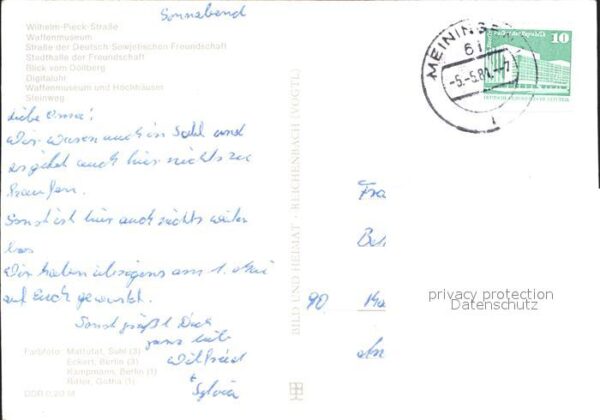 Sonnabend
Wilhelm-Pieck-Straße
Waffenmuseum
Straße der Deutsch-Sowjetischen Freundschaft
Stadthalle der Freundschaft
Blick vom Döllberg
Digitaluhr
Waffenmuseum und Hochhäuser
Steinweg
Liebe Oma!
Wir waren auch in Suhl und
es gibt auch hier nichts zu
kaufen.
Sonst ist hier auch nichts weiter
los
Wir haben übrigens am 1. Mai
auf Euch gewartet.
Sonst grüßt Dich
ganz lieb
Wilfried
+ Sylvia
Farbfoto: Mattutat, Suhl (3)
Eckert, Berlin (3)
Kampmann, Berlin (1)
Ritter, Gotha (1)
DDR 0,20 M
BILD UND HEIMAT · REICHENBACH (VOGTL)
MEININGEN
61
-5.-5.81.-7
10
Palast der Republik
DEUTSCHE DEMOKRATISCHE REPUBLIK
Fra
90
privacy protection
Datenschutz